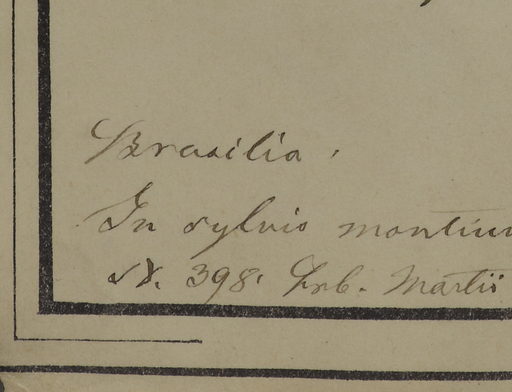 Brasilia.
In sylvis montium
N. 398. Hrb. Martii